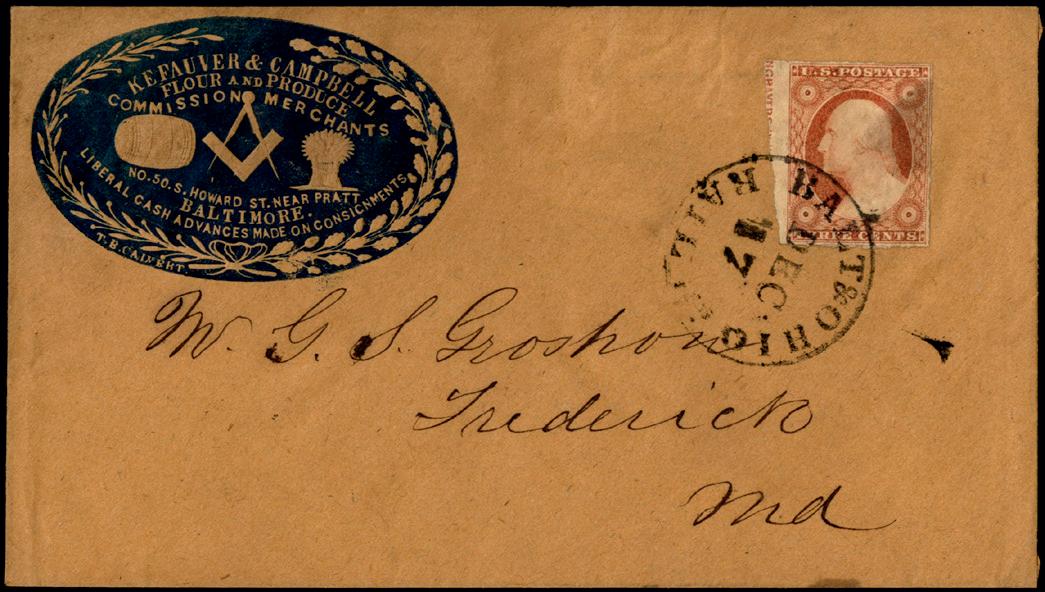 KEFAUVER & CAMPBELL
FLOUR AND PRODUCE
COMMISSION MERCHANTS
NO. 50. S. HOWARD ST. NEAR PRATT
BALTIMORE.
LIBERAL CASH ADVANCES MADE ON CONSIGNMENTS.
T. B. CALVERT.
U.S. POSTAGE
CENTS
BALT & OHIO RAIL
DEC.
17
Mr. G. S. Groshon
Frederick
Md